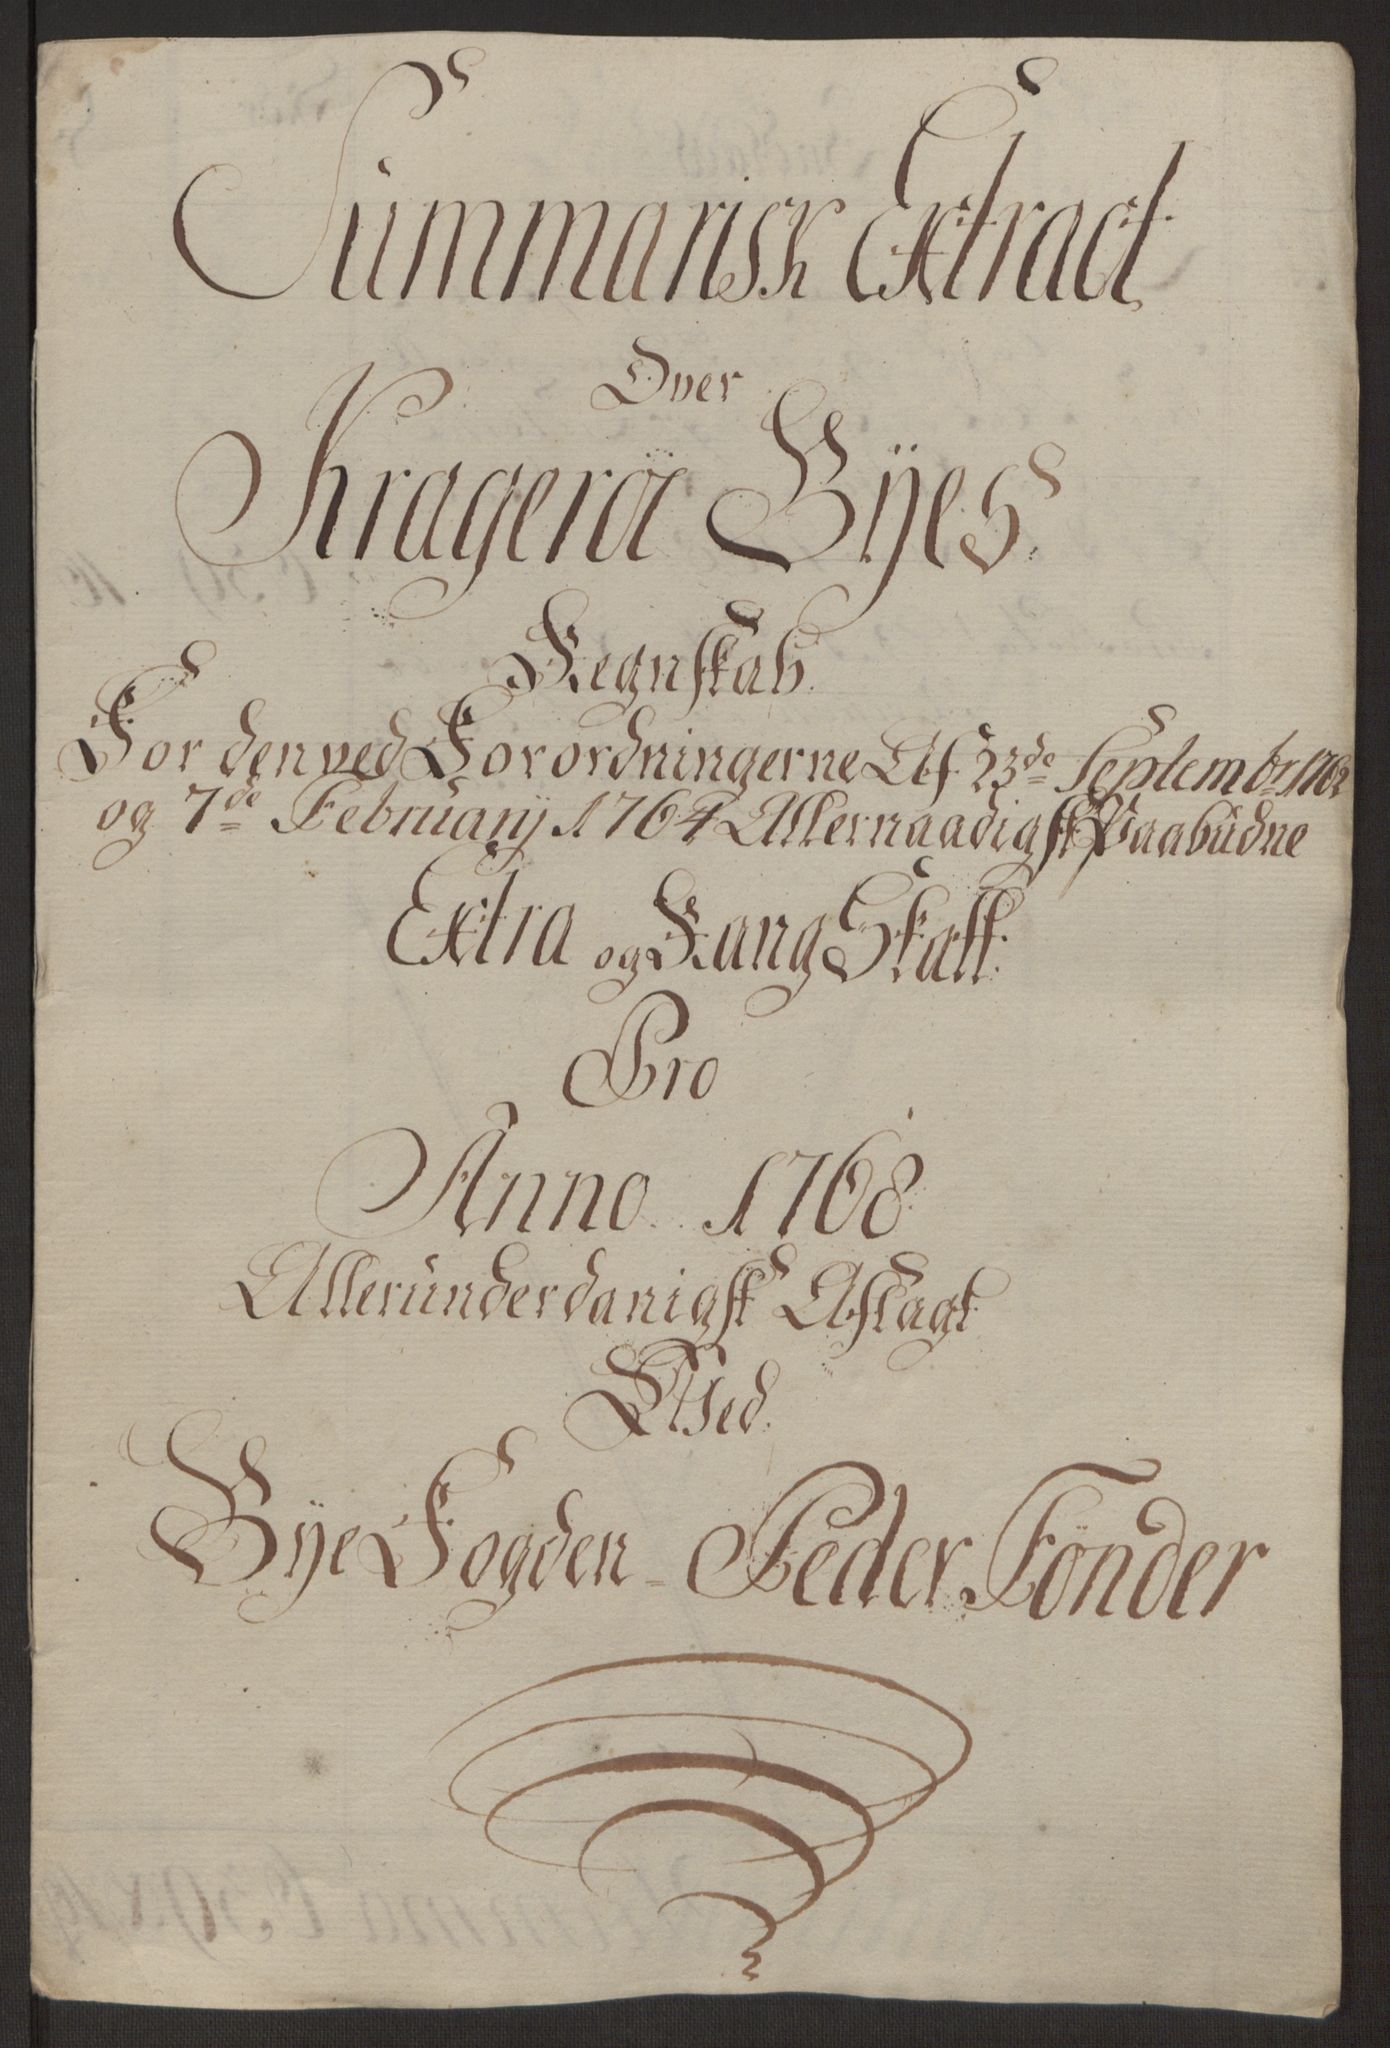 Summarisk Extract
Over
Kragerøe Bÿes
Regnskab
For den ved Forordningerne Af 23de Septembr 1762
og 7de Februarij 1764 Allernaadigst Paabudne
Extra og Rang Skatt
Pro
Anno 1768
Allerunderdanigst Aflagt
Wed
Bÿe Fogden - Peder Tönder